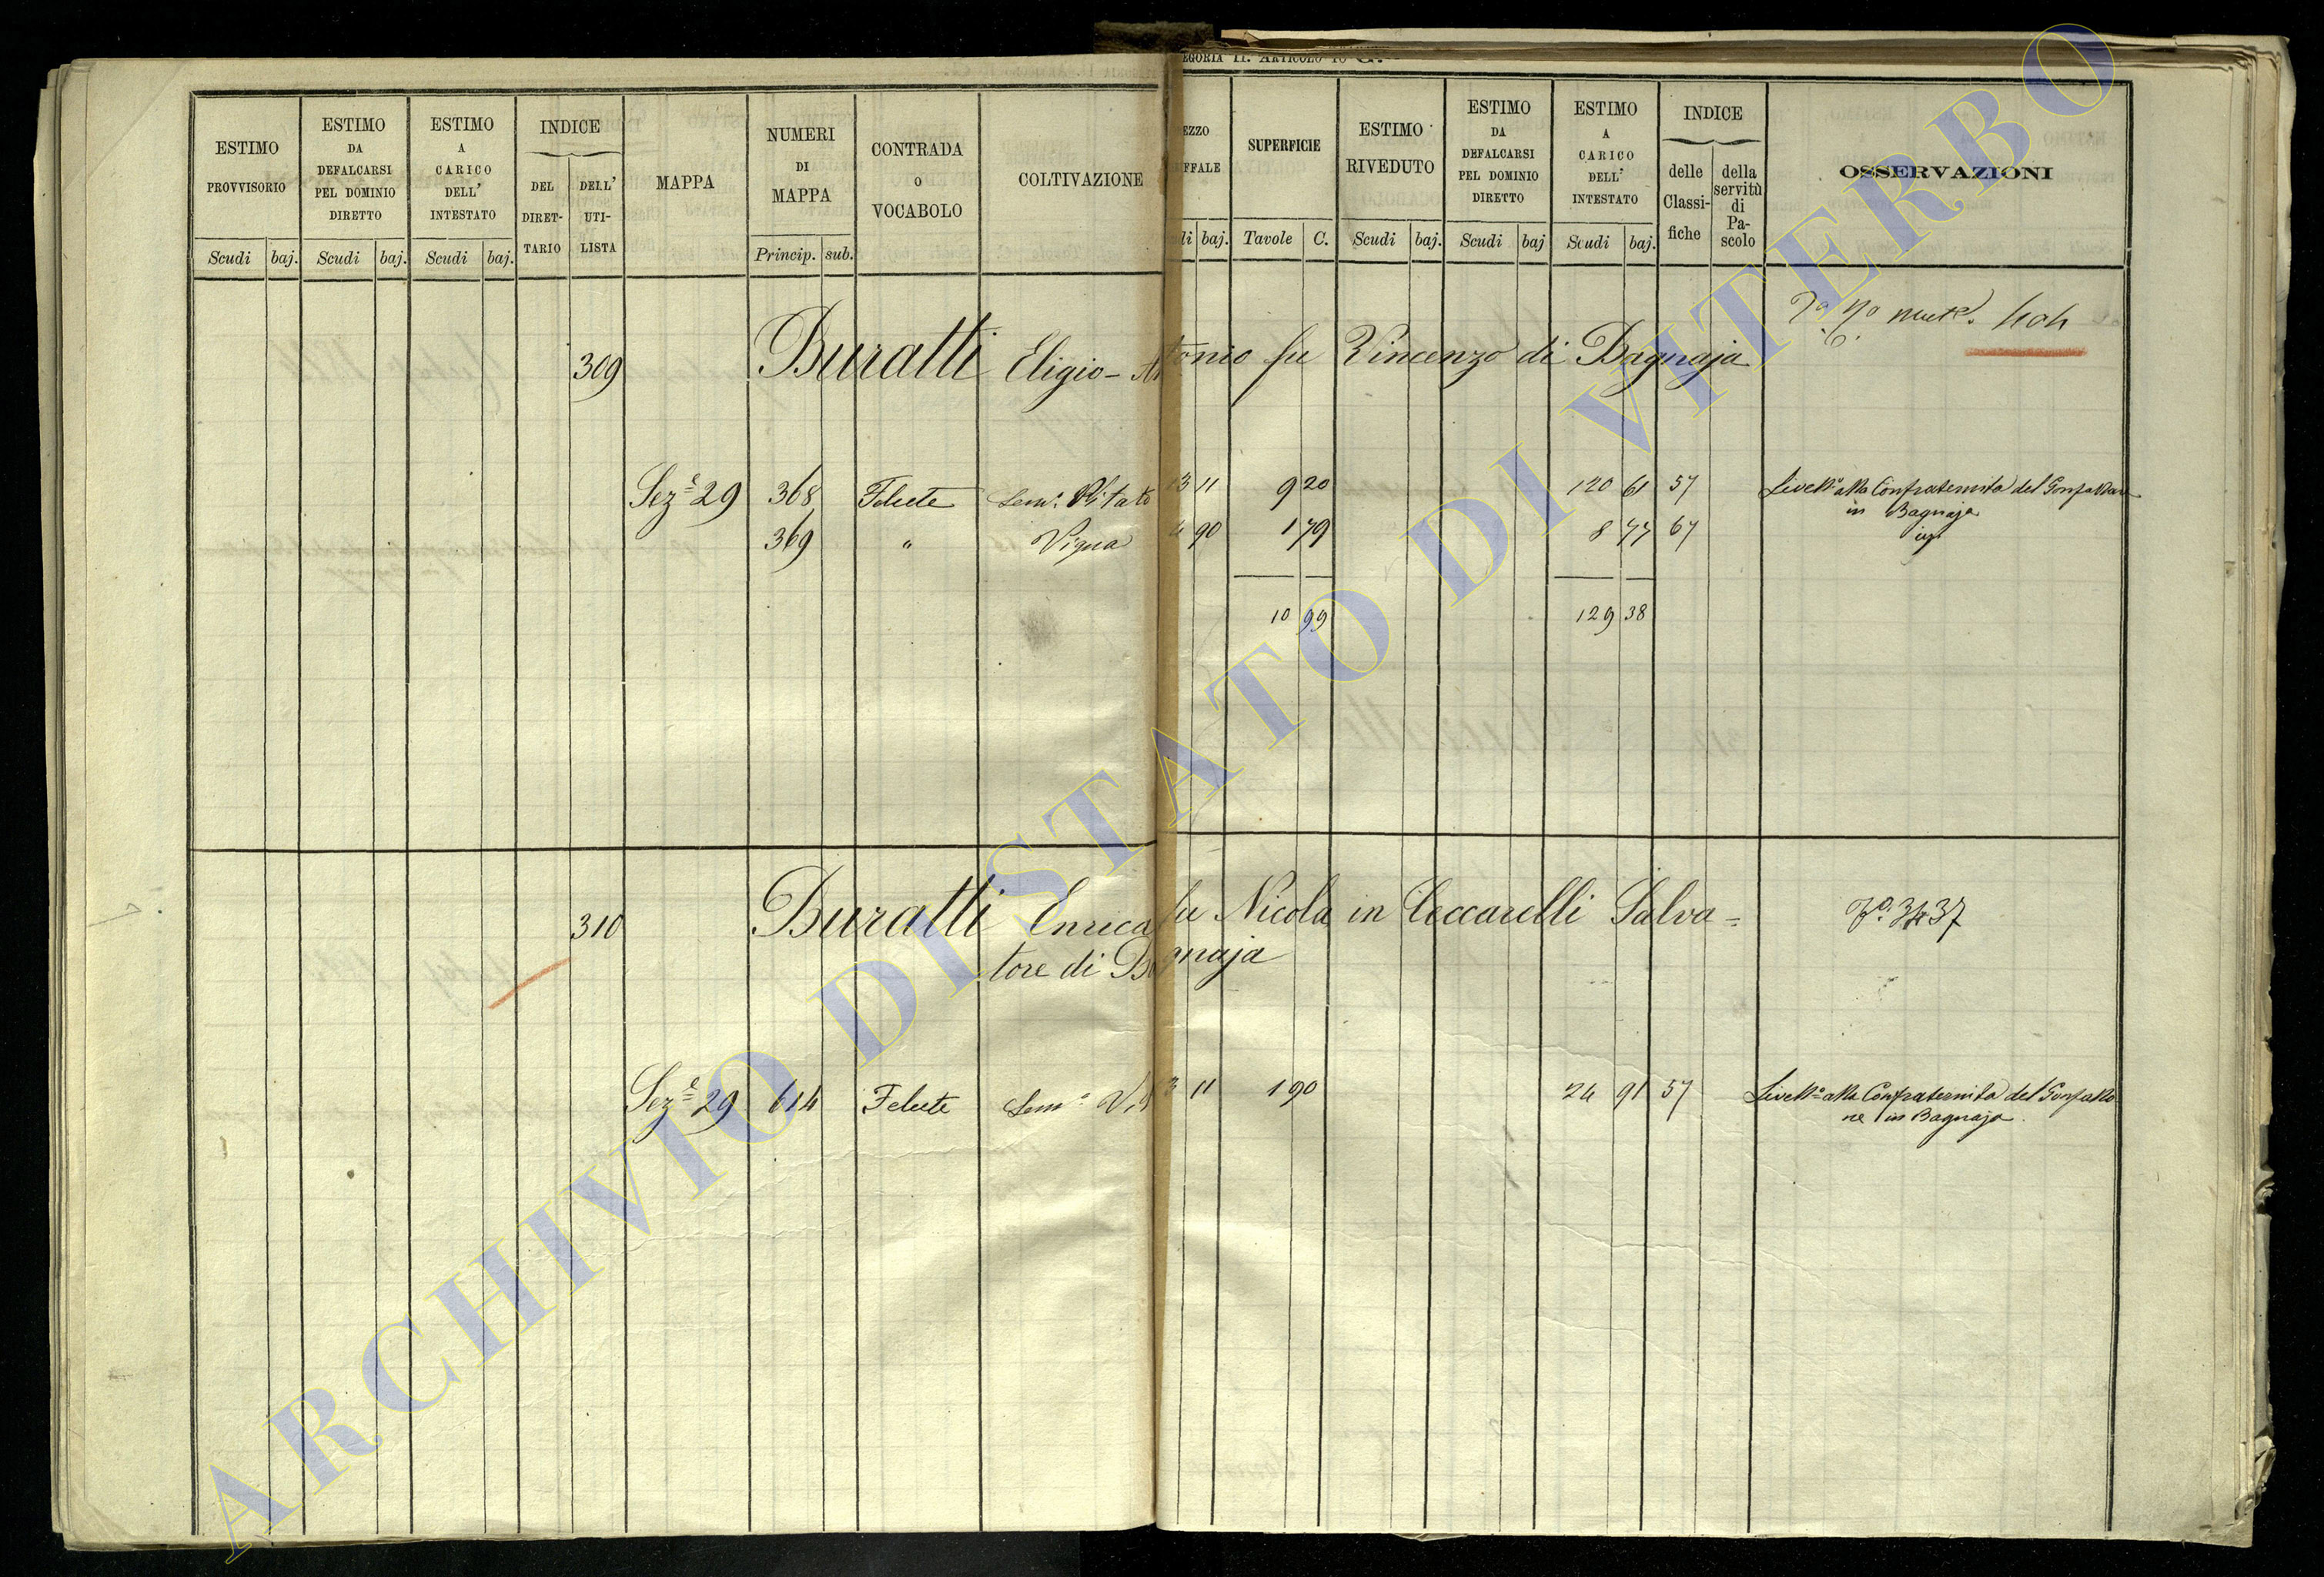 EGORIA II. ARTICOLO 10 G.
ESTIMO PROVVISORIO
Scudi baj.
ESTIMO DA DEFALCARSI PEL DOMINIO DIRETTO
Scudi baj.
ESTIMO A CARICO DELL' INTESTATO
Scudi baj.
INDICE
DEL DIRET-TARIO
DELL' UTI-LISTA
MAPPA
NUMERI DI MAPPA
Princip. sub.
CONTRADA O VOCABOLO
COLTIVAZIONE
EZZO
FFALE
di baj.
SUPERFICIE
Tavole C.
ESTIMO RIVEDUTO
Scudi baj.
ESTIMO DA DEFALCARSI PEL DOMINIO DIRETTO
Scudi baj
ESTIMO A CARICO DELL' INTESTATO
Scudi baj.
INDICE
delle Classi-fiche
della servitù di Pa-scolo
OSSERVAZIONI
309 Buratti Eligio-Antonio fu Vincenzo di Bagnaja
Sez.e 29 368 Felcete Sem.o Vitato 13 11 9 20 120 61 57 Livell.o alla Confraternita del Gonfalone
in Bagnaja
369 " Vigna 4 90 1 79 8 77 67
10 99 129 38
310 Buratti Enrica fu Nicola in Ceccarelli Salva=
tore di Bagnaja
Sez.e 29 614 Felcete Sem.o Vit 3 11 1 90 24 91 57 Livell.o alla Confraternita del Gonfalo
ne in Bagnaja
ARCHIVIO DI STATO DI VITERBO